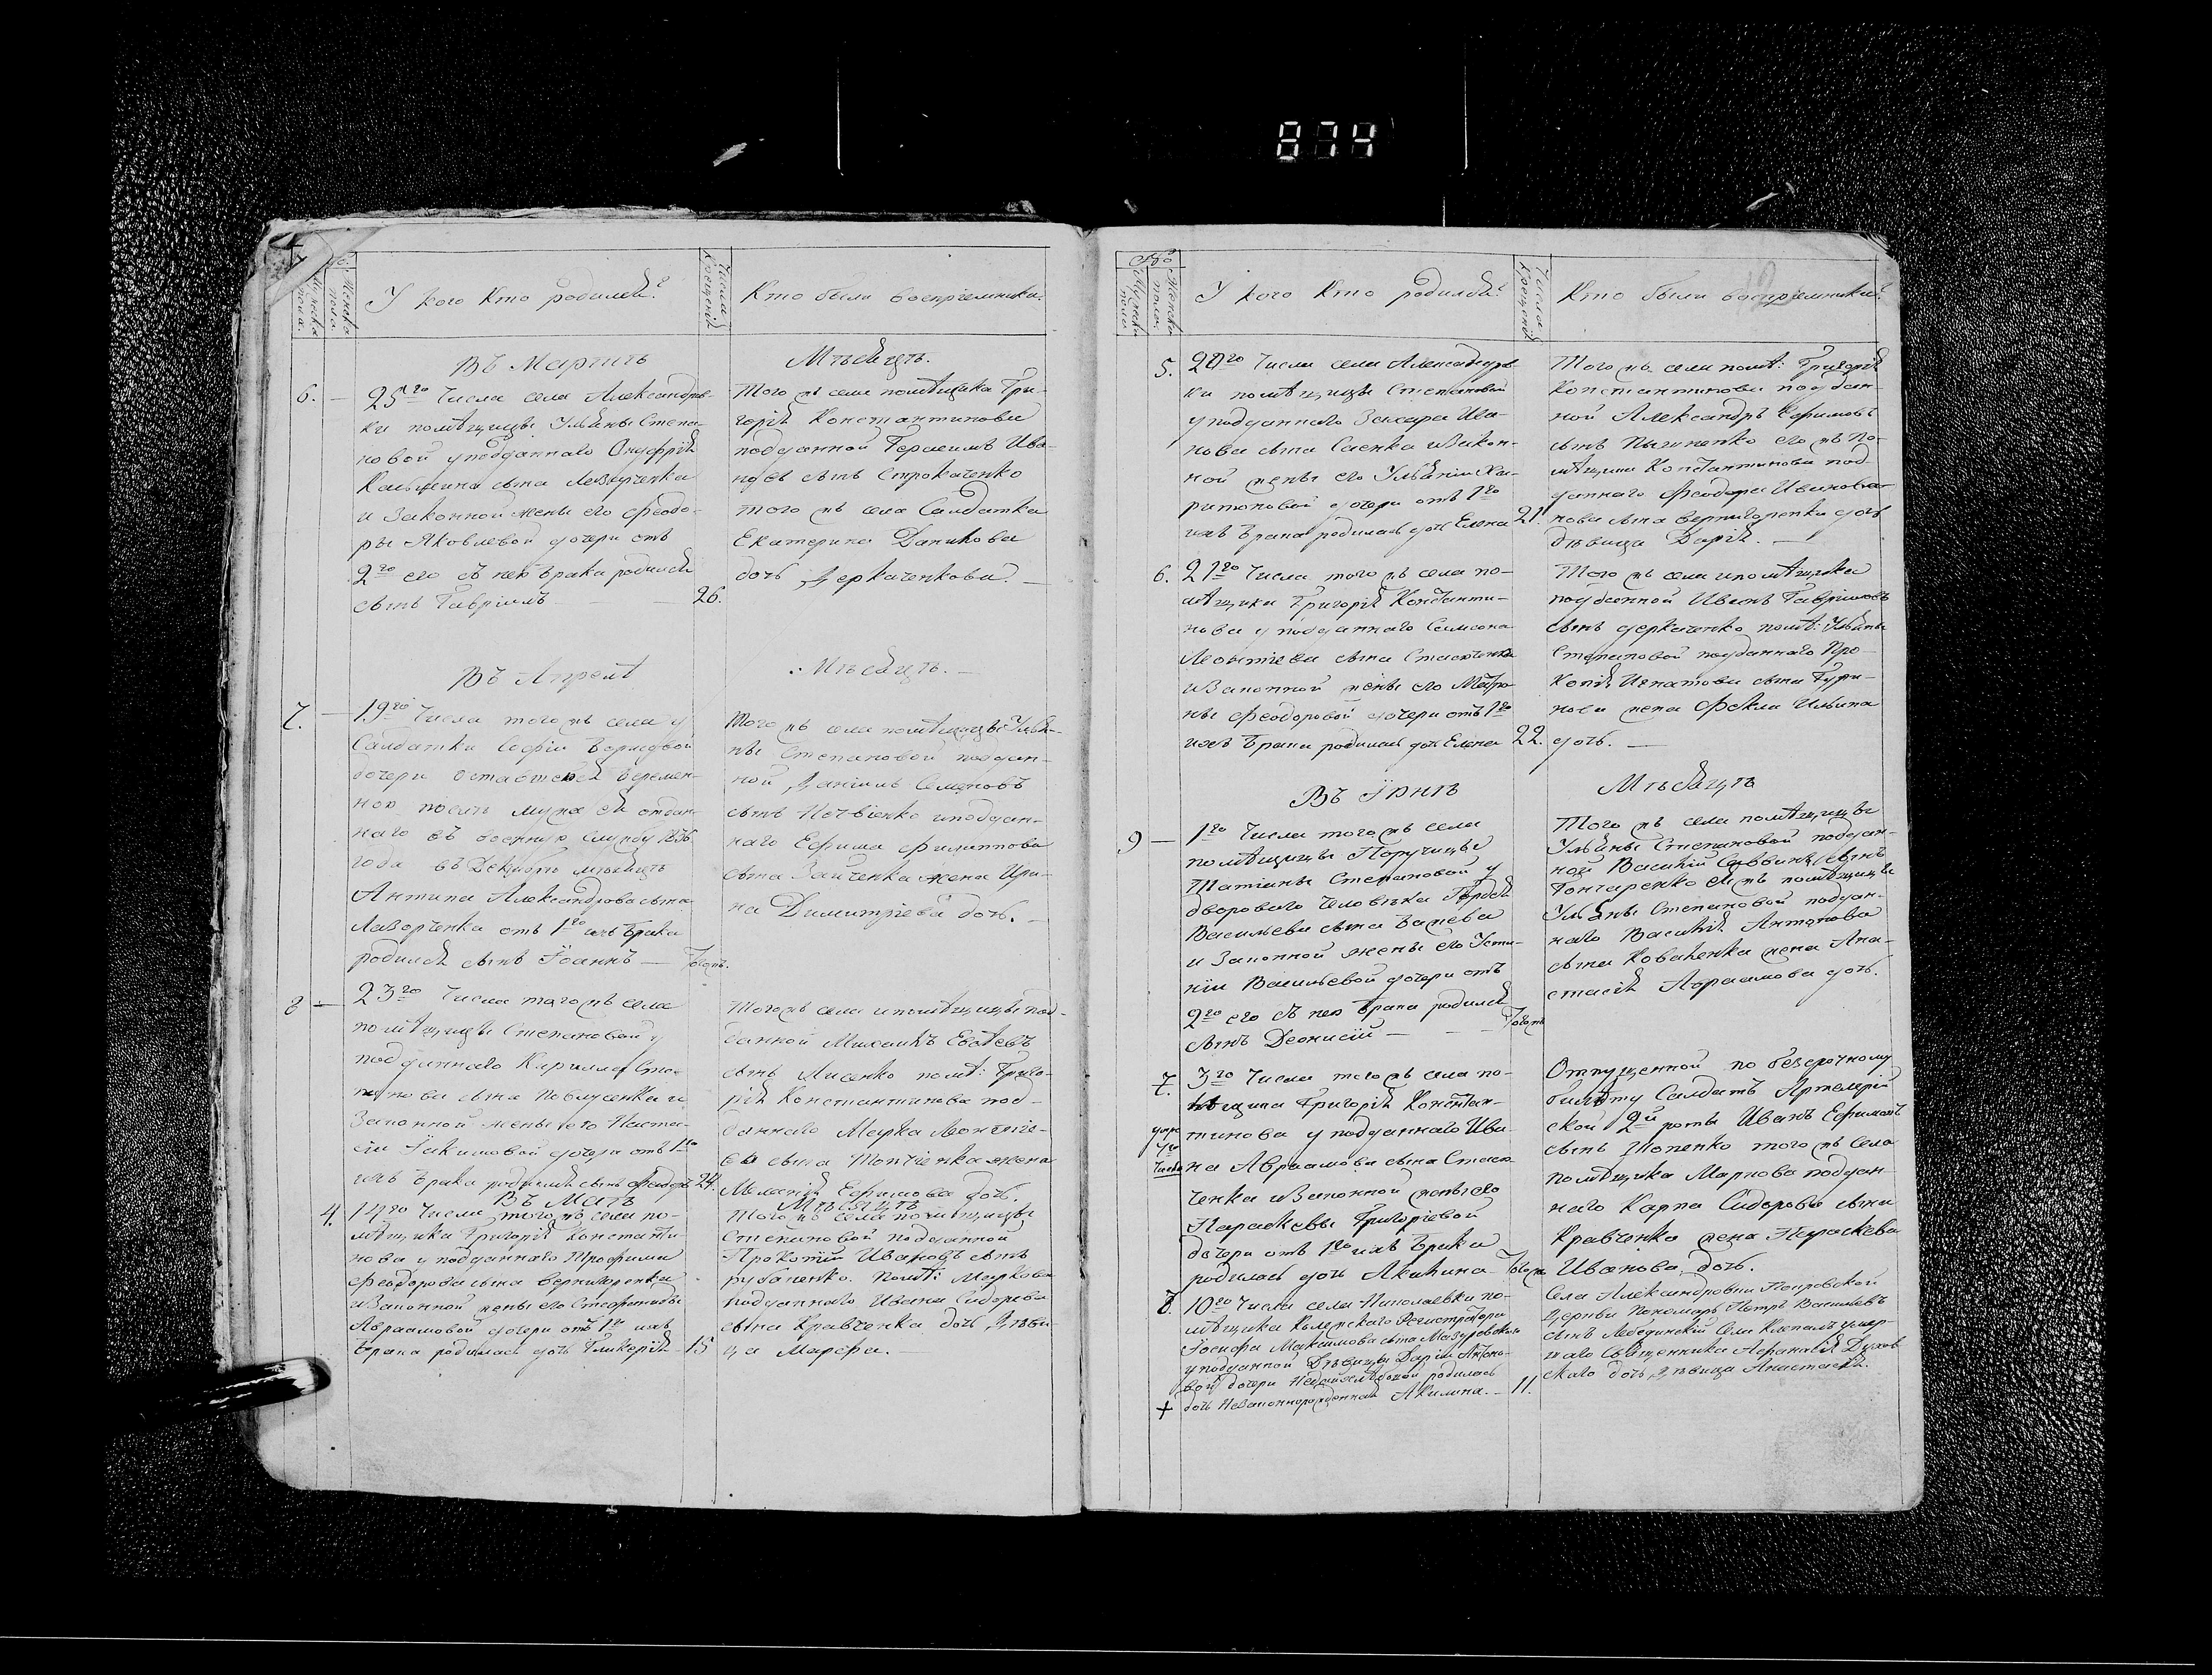 874
№
Мужеска пола.
Женска пола.
У кого Кто родился?
Числа Крещенія
Кто были воспріемники.
Въ Мартѣ
Мѣсяцѣ.
6. — 25го Числа села Александров-
ки помѣщицы Ульяны Степа-
новой у подданнаго Онуфрія
сына
и Законной жены его Феодо-
ры Яковлевой дочери отъ
2го его съ нею брака родился
сынъ Гавріилъ — 26.
Того жъ села помѣщика Гри-
горія Константинова
подданной Герасимъ Ива-
новъ сынъ Строкаченко
того жъ села Салдатка
Екатерина Данилова
дочь Деркаченкова. —
Въ Апрелѣ
Мѣсяцѣ. —
7. — 19го Числа того жъ села у
Салдатки Софіи Борисовой
дочери оставшейся беремен-
ною послѣ мужа ея отдан-
наго въ военную службу 1836
года въ Декабрѣ мѣсяцѣ
Антипа Александрова сына
Лазорченка отъ 1го ихъ брака
родился сынъ Іоаннъ — Тогожъ.
Того жъ села помѣщицы Улья-
ны Степановой поддан-
ной Даніилъ Семеновъ
сынъ и поддан-
наго Ефима Филиппова
сына Зайченка жена Ири-
на Димитріева дочь. —
8 — 23го Числа того жъ села
помѣщицы Степановой у
подданнаго Кирилла Сте-
панова сына Павлусенка и
Законной жены его Наста-
сіи Іакимовой дочери отъ 1го
ихъ брака родился сынъ Феодоръ 24.
Того жъ села и помѣщицы под-
данной Михаилъ Евсѣевъ
сынъ Лисенко помѣ: Григо-
рія Константинова под-
даннаго Марка Леонтіе-
ва сына жена
Меланія Ефимова дочь.
Въ Маѣ
Мѣсяцѣ
4. 14го Числа того жъ села по-
мѣщика Григорія Константи-
нова у подданнаго Трофима
Феодорова сына Вернигоренка
и Законной жены его Стефаниды
Авраамовой дочери отъ 1го ихъ
брака родилась дочь Гликерія — 15
Того жъ села помѣщицы
Степановой подданной
Прокопій Ивановъ сынъ
Рубаненко. Помѣ: Маркова
подданнаго Ивана Сидорова
сына Кравченка дочь Дѣви-
ца Марфа. —
12
№
Мужеска пола
Женска пола.
У кого Кто родился?
Числа Крещенія
Кто были воспріемники?
5. 20го Числа села Александров-
ки помѣщицы Степановой
у подданнаго Захара Ива-
нова сына Саенка и Закон-
ной жены его Ульяніи Ха-
ритоновой дочери отъ 1го
ихъ брака родилась дочь Елена 21.
Того жъ села помѣ: Григорія
Константинова поддан-
ной Александръ Ефимовъ
сынъ его жъ по-
мѣщика Константинова под-
даннаго Феодора Иванова
нова сына Вернигоренка дочь
дѣвица Дарія. —
6. 21го Числа того жъ села по-
мѣщика Григорія Константи-
нова у подданнаго Симеона
Леонтіева сына Стасюченка
и Законной жены его Матро-
ны Феодоровой дочери отъ 1го
ихъ брака родилась дочь Елена 22.
Того жъ села и помѣщика
подданной Иванъ Гавриловъ
сынъ Деркаченко помѣ: Ульяны
Степановой подданнаго Про-
копія Игнатова сына Гури-
нова жена Фекла Ильина
дочь. —
Въ Іюнѣ
Мѣсяцѣ
9 — 1го Числа того жъ села
помѣщицы Поручицы
Татіаны Степановой у
двороваго человѣка Гордѣя
Васильева сына Валева
и Законной жены его Усти-
ніи Васильевой дочери отъ
2го его съ нею брака родился
сынъ Діонисій — — Тогожъ
Того жъ села помѣщицы
Ульяны Степановой поддан-
ной Василій Саввинъ сынъ
Гончаренко тоя жъ помѣщицы
Ульяны Степановой поддан-
наго Василія Антонова
сына Коваленка жена Ана-
стасія Авраамова дочь.
7. 3го Числа того жъ села по-
мѣщика Григорія Констан-
тинова у подданнаго Ива-
на Авраамова сына Стасю-
ченка и Законной жены его
Параскевы Григоріевой
дочери отъ 1го ихъ брака
родилась дочь Акилина — Тогожъ
умре 4го Числа
Отпущенной по безсрочному
билѣту Салдатъ Артелерій
ской 2й роты Иванъ Ефимовъ
сынъ Попенко того жъ села
помѣщика Маркова поддан-
наго Карпа Сидорова сына
Кравченка жена Параскева
Иванова дочь.
8. 10го Числа села Николаевки по-
мѣщика Колежскаго Регистратора
Іосифа Максимова сына Мазуровскаго
у подданной Дѣвицы Даріи Антоно-
вой дочери родилась
дочь Незаконнорожденная Акилина. — 11.
+
Села Александровки Покровской
Церкви Пономарь Петръ Васильевъ
сынъ Лебединскій Села Клепалъ умер-
шаго Священника Афанасія Духов
скаго дочь Дѣвица Анастасія.